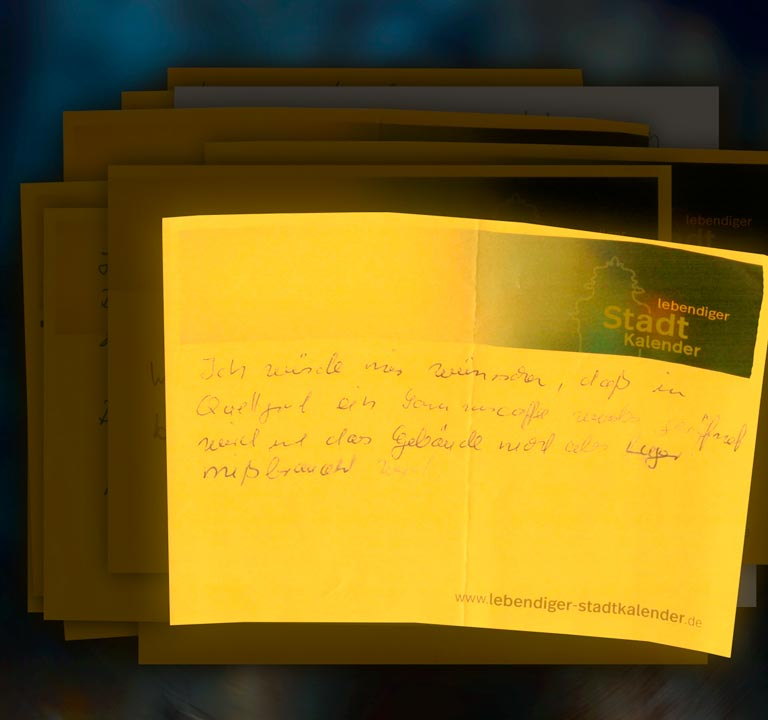 lebendiger
lebendiger
Stadt
Kalender
Ich würde mir wünschen, daß in
ein wieder geöffnet
wird und das Gebäude nicht als Lager
mißbraucht wird
www.lebendiger-stadtkalender.de